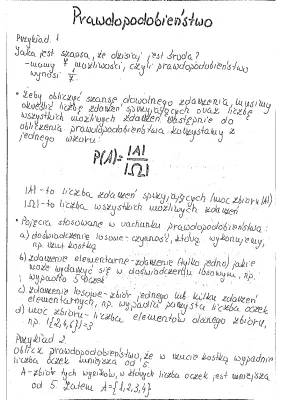 Prawdopodobieństwo
Przykład 1
Jaka jest szansa, że dzisiaj jest środa?
-mamy 7 możliwości, czyli prawdopodobieństwo
wynosi 1/7
• Żeby obliczyć szansę dowolnego zdarzenia, musimy
określić liczbę zdarzeń sprzyjających oraz liczbę
wszystkich możliwych zdarzeń. Następnie do
obliczenia prawdopodobieństwa korzystamy z
jednego wzoru:
P(A)=|A|/|Ω|
|A|-to liczba zdarzeń sprzyjających (moc zbioru |A|)
|Ω|-to liczba wszystkich możliwych zdarzeń
• Pojęcia stosowane w rachunku prawdopodobieństwa:
a) doświadczenie losowe-czynność, którą wykonujemy,
np. rzut kostką
b) zdarzenie elementarne-zdarzenie (tylko jedno) jakie
może wydarzyć się w doświadczeniu losowym, np.
wypadło 5 oczek
c) zdarzenie losowe-zbiór jednego lub kilku zdarzeń
elementarnych, np. wypadła parzysta liczba oczek
d) moc zbioru-liczba elementów danego zbioru,
np. |{2,4,6}|=3
Przykład 2.
Oblicz prawdopodobieństwo, że w rzucie kostką wypadnie
liczba oczek mniejsza od 5
A-zbiór tych wyników, w których liczba oczek jest mniejsza
od 5. Zatem A={1,2,3,4}